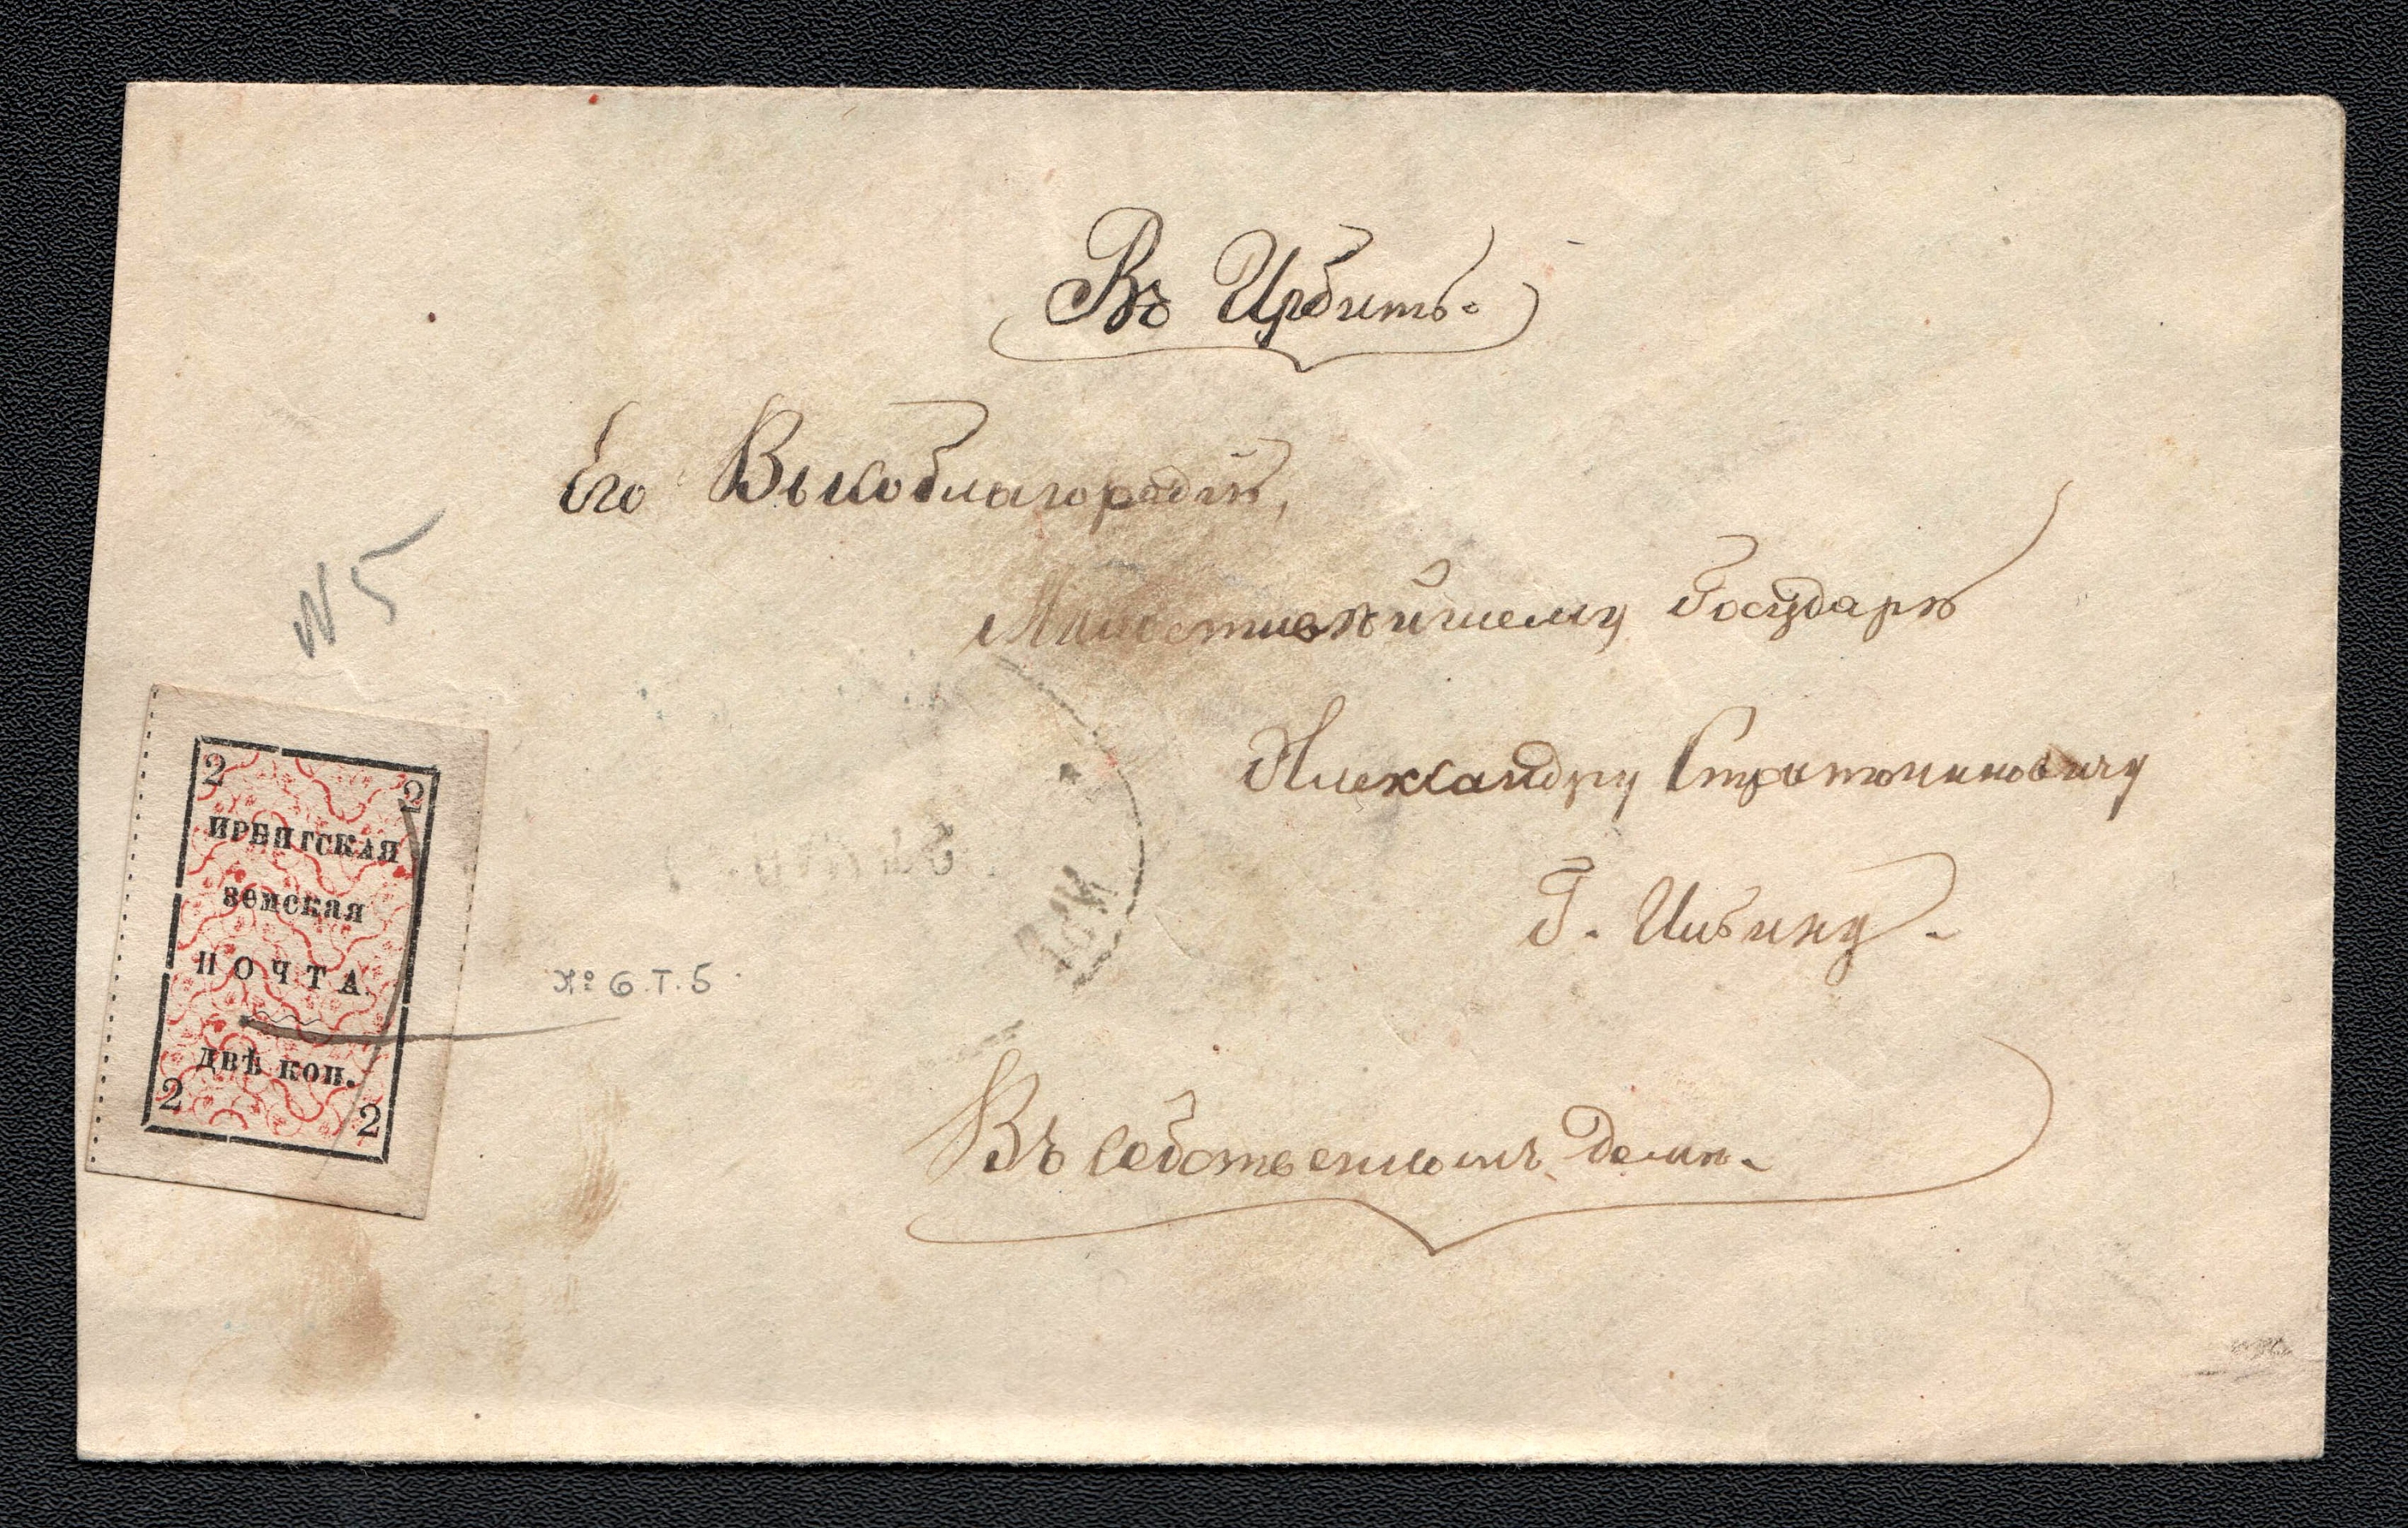 Въ Ирбитъ.
Его Выкоблагородію,
Милостивѣйшему Государю
Александру
Г. Ильину.
Въ собственномъ домѣ.
№ 5
2 2
ИРБИТСКАЯ
земская
ПОЧТА.
ДВѢ коп.
2 2
№ 6.Т.5